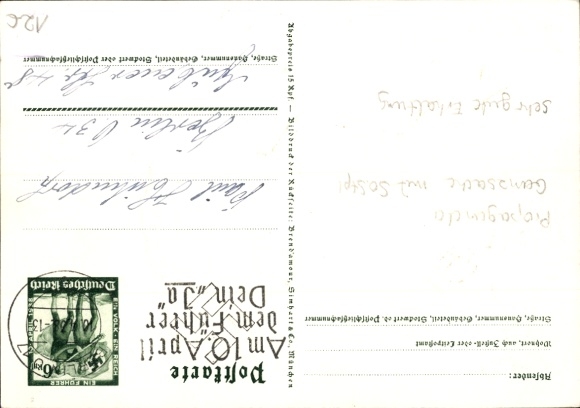 Postkarte
Am 10. April
dem Führer
Dein „Ja“
EIN FÜHRER
6
EIN VOLK EIN REICH
Deutsches Reich
Berlin O
Straße, Hausnummer, Gebäudeteil, Stockwert oder Postschließfachnummer
Absender:
Wohnort, auch Zustell- oder Leitpostamt
Straße, Hausnummer, Gebäudeteil, Stockwerk od. Postschließfachnummer
Propaganda
Ganzsache mit SoStpl
sehr gute Erhaltung
Abgabepreis 15 Rpf. - Bilddruck der Rückseite: Bruckmann, München
120